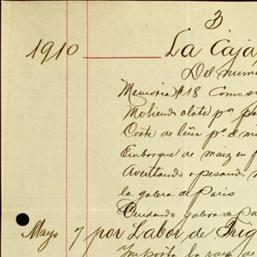 3
1910 La Caja
Del nume
Memoria #18 Como s
Moliendo olote pa p
Corte de leña pa el m
Embarque de maiz en f
Aventando o pesando
la galera de Paris
Cuidando galera de Pa
Mayo 7 por Labor de Trig
Importe la raya de